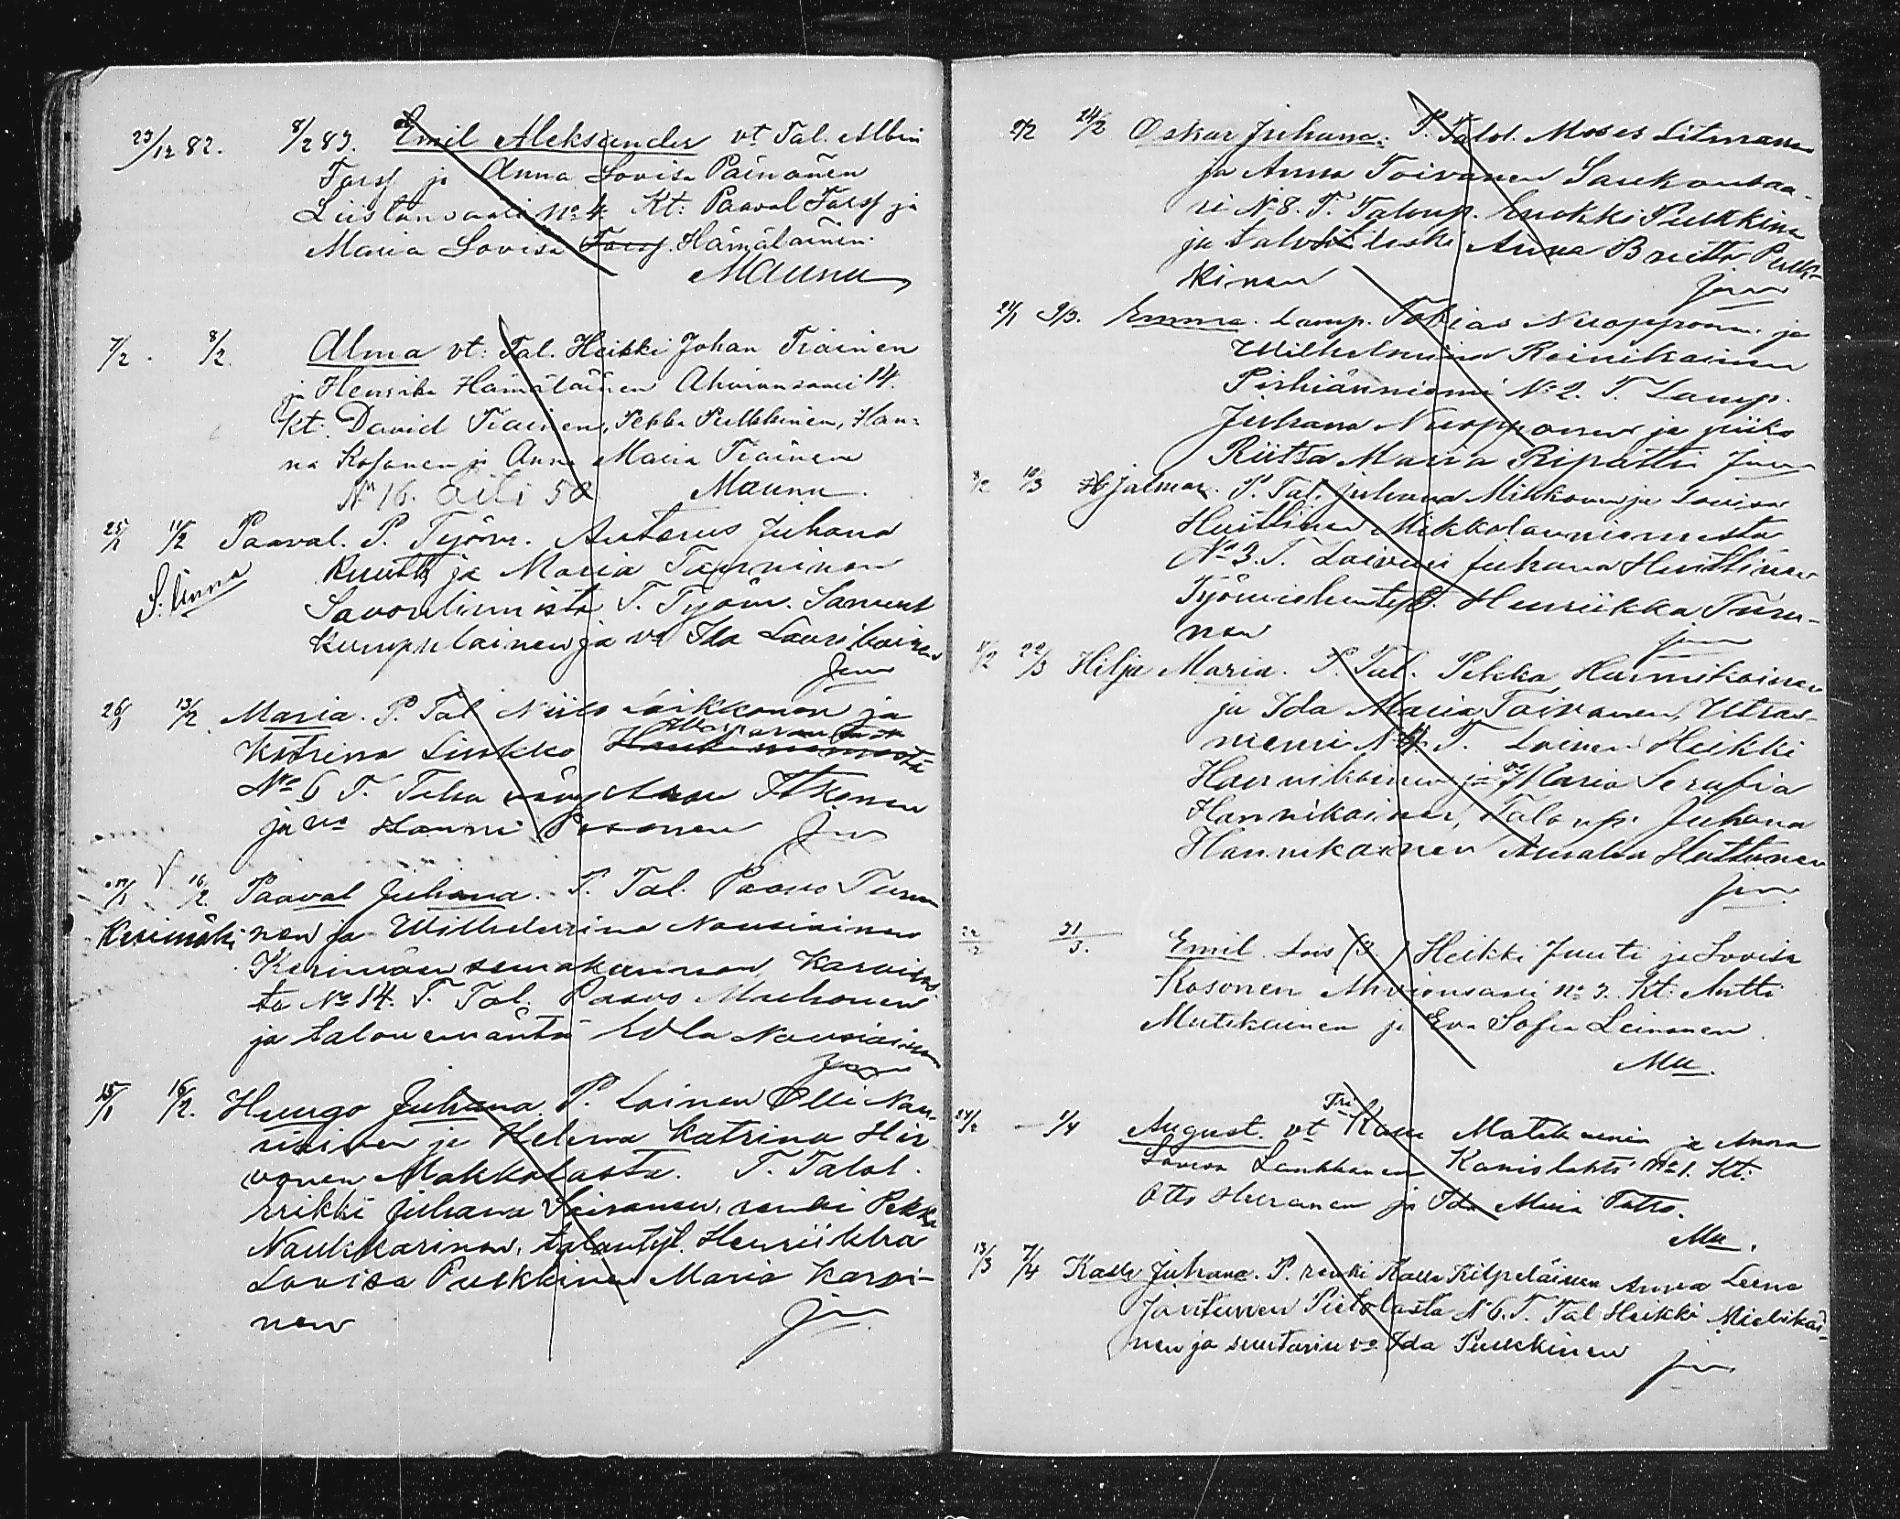 23/12 82. 8/2 83. Emil Aleksander vt Tal. Albin
Forss ja Anna Lovisa Päivänen
Liistonsaari No 4. Kt: Paaval Forss ja
Maria Lovisa Forss. Hämäläinen.
Maunu
7/2. 8/2. Alma vt: Tal. Heikki Johan Tiainen
ja Henrika Hämäläinen Ahvionsaari 14.
Kt. David Tiainen, Pekka Pulkkinen, Han-
na Kosonen ja Anna Maria Tiainen
No 16. Äiti 50 Maunu.
25/1 11/2 Paaval. P. Työm. Anterus Juhana
Kuutti ja Maria Tanninen
S. linna
Savonlinnista T. Työm.
Kumpulainen ja vo Ida Laurikainen
26/1 13/2 Maria. P. Tal. Niilo Laikkonen ja
Katrina Sinkko
No 6 T. Itkonen
ja vo Hanni Posonen
16/2 Paaval Juhana. P. Tal. Paavo Turu-
Kerimäki nen ja Wilhelmina Nousiainen
Kerimäen seurakunnan
ta No 14. T. Tal. Paavo Muhonen
ja talonemäntä Edla Nousiainen
15/1 16/2. Huugo Juhana. P. Loinen Olli Nou-
siainen ja Helena Katrina Hir
vonen Makkolasta. T. Talol.
Erikki Juhana renki Pekka
Naukkarinen, talontyt. Henriikka
Lovisa Pulkkinen Maria Karvi-
nen
9/2 24/2 Oskar Juhana. P. Talol. Moses Litmanen
ja Anna Toivanen Saukonsaa-
ri No 8. T. Talonp. Enokki Pulkkinen
ja leski Anna Britta Pulk-
kinen
21/1 9/3. Emma. Lamp. Tobias Nuopponen ja
Wilhelmina Reinikainen
Pirhiänniemi No 2. T. Lamp.
Juhana Nuopponen ja piika
Riitta Maria Ripatti
8/2 10/3 Hjalmar. P. Tal. Juhana Mikkonen ja Lovisa
Huttinen Mikkolanniemestä
No 3. T. Loivuri Juhana Huttinen
Työmiehentyt. Henriikka Turu-
nen
22/3 Hilja Maria. P. Tal. Pekka Hannikainen
ja Ida Maria Toivanen, Utras-
niemi No 4. T. Loinen Heikki
Hannikainen ja vo Maria Serafia
Hannikainen, Talonp. Juhana
Hannikainen Amalia Huttunen
31/3. Emil. Lois Heikki Juuti ja Lovisa
Kosonen Ahvionsaari no 3. Kt: Antti
Mutikainen ja Eva Sofia Leinonen.
Mu.
1/4 August. vt Matikainen ja Anna
Lovisa Laukkanen Kanislahti No 1. Kt:
Otto Hiiranen ja Ida Maria Tatto.
Mu.
13/3 7/4 Kalle Juhana. P. renki Kalle Kilpeläinen Anna Leena
Jantunen Pietolasta No 6. T. Tal Heikki Mielikäi-
nen ja suutarin vo Ida Pulkkinen